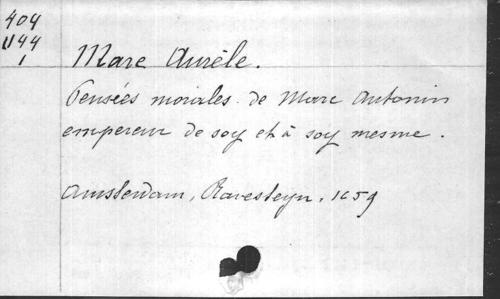 404
1144
1
Marc Aurèle.
Pensées morales de Marc Antonin
empereur de soy et à soy mesme.
Amsterdam, Ravesteyn, 1659